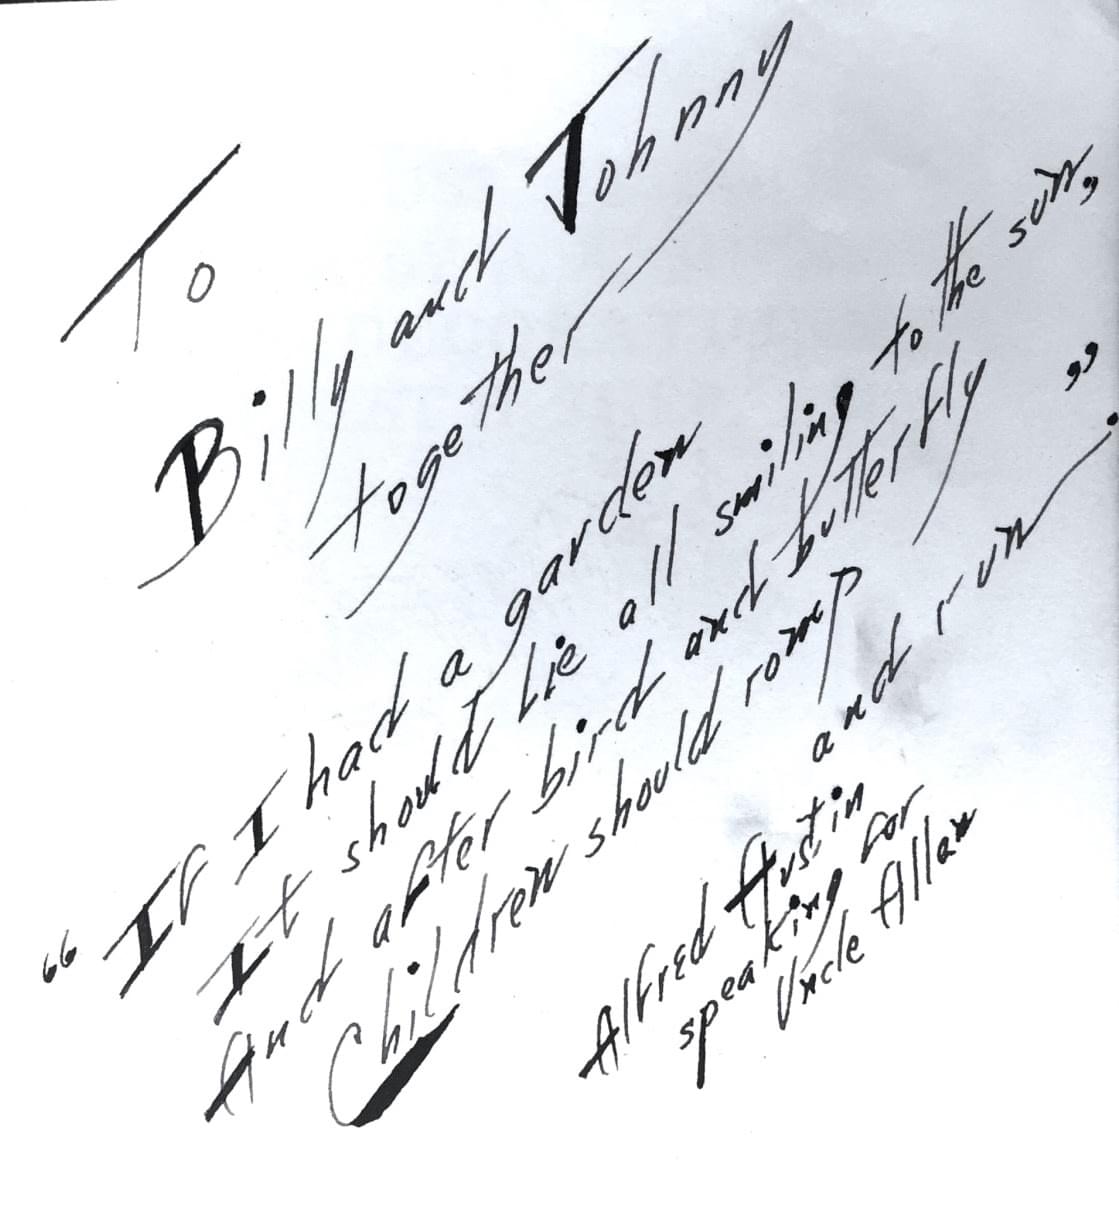 To
Billy and Johnny
together
“If I had a garden
It should lie all smiling to the sun,
And after bird and butterfly
Children should romp
and run.”
Alfred Austin
speaking for
Uncle Allan